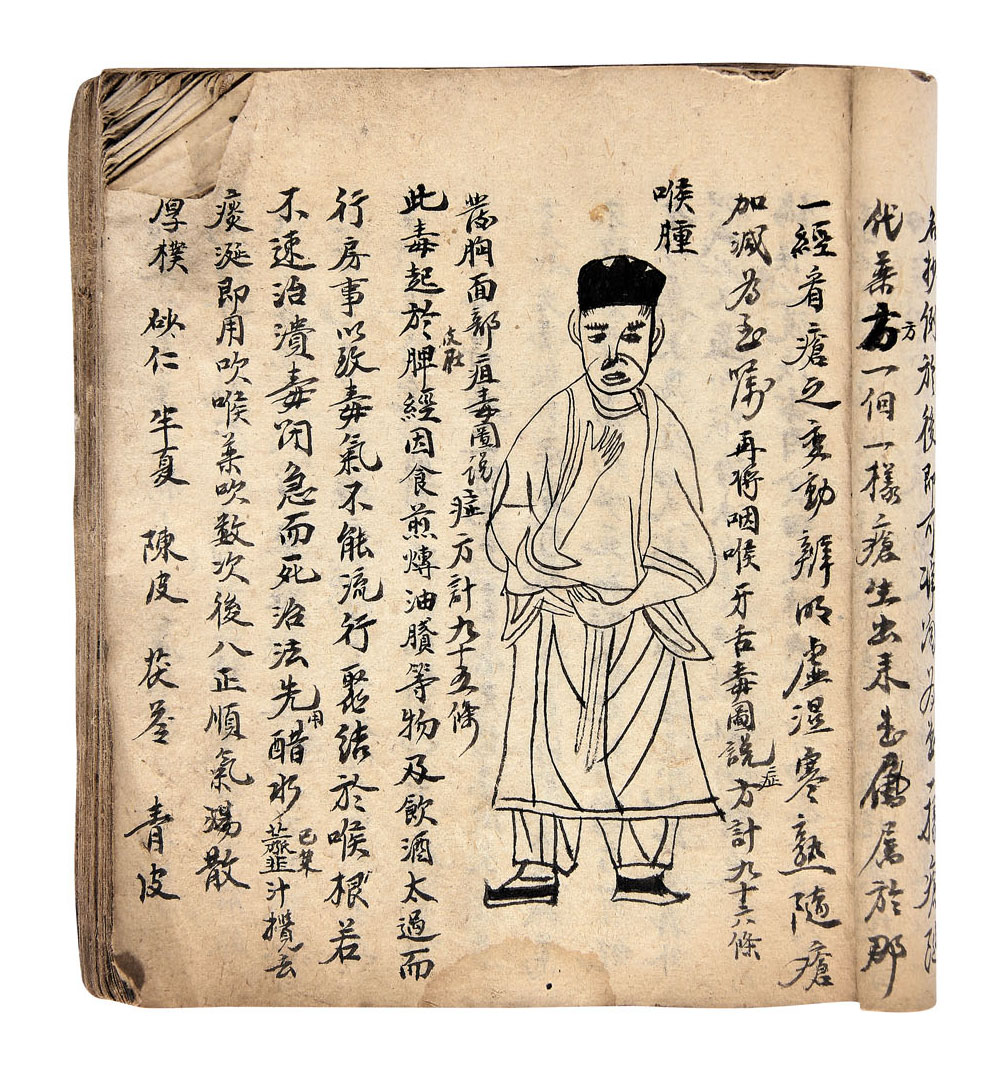 抄 於後即可 一 瘡
代藥方方一個一樣瘡生出来 屬於那
一經看瘡之变動辨明虚湿寒熟隨瘡
加減為玉嘱 再將咽喉牙舌毒圖説症方計九十六條
喉腫
胸面部疽毒圖说症方計九十五條
此毒起於脾經因食煎煿油膩等物及飲酒太過而
行房事以致毒氣不能流行聚结於喉根若
不速治潰毒閉急而死治法先用醋水 韮汁攪去
痰涎即用吹喉薬吹数次後八正順氣湯散
厚樸 砂仁 半夏 陳皮 茯苓 青皮